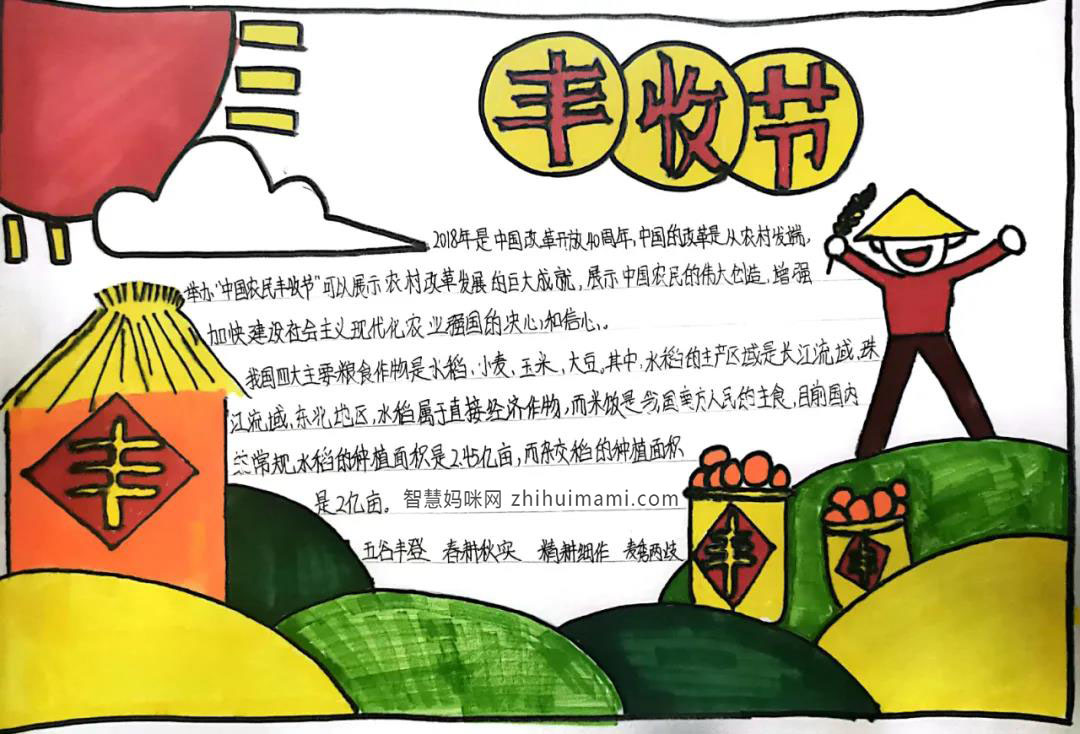 丰收节
2018年是中国改革开放40周年,中国的改革是从农村发端,
举办"中国农民丰收节"可以展示农村改革发展的巨大成就,展示中国农民的伟大创造,增强
加快建设社会主义现代化农业强国的决心和信心。
我国四大主要粮食作物是水稻、小麦、玉米、大豆。其中,水稻的主产区域是长江流域、珠
江流域、东北地区,水稻属于直接经济作物,而米饭是我国南方人民的主食,目前国内
常规水稻的种植面积是2.45亿亩,而杂交稻的种植面积
是2亿亩。
智慧妈咪网 zhihuimami.com
五谷丰登 春耕秋实 精耕细作 两歧
丰
丰
丰